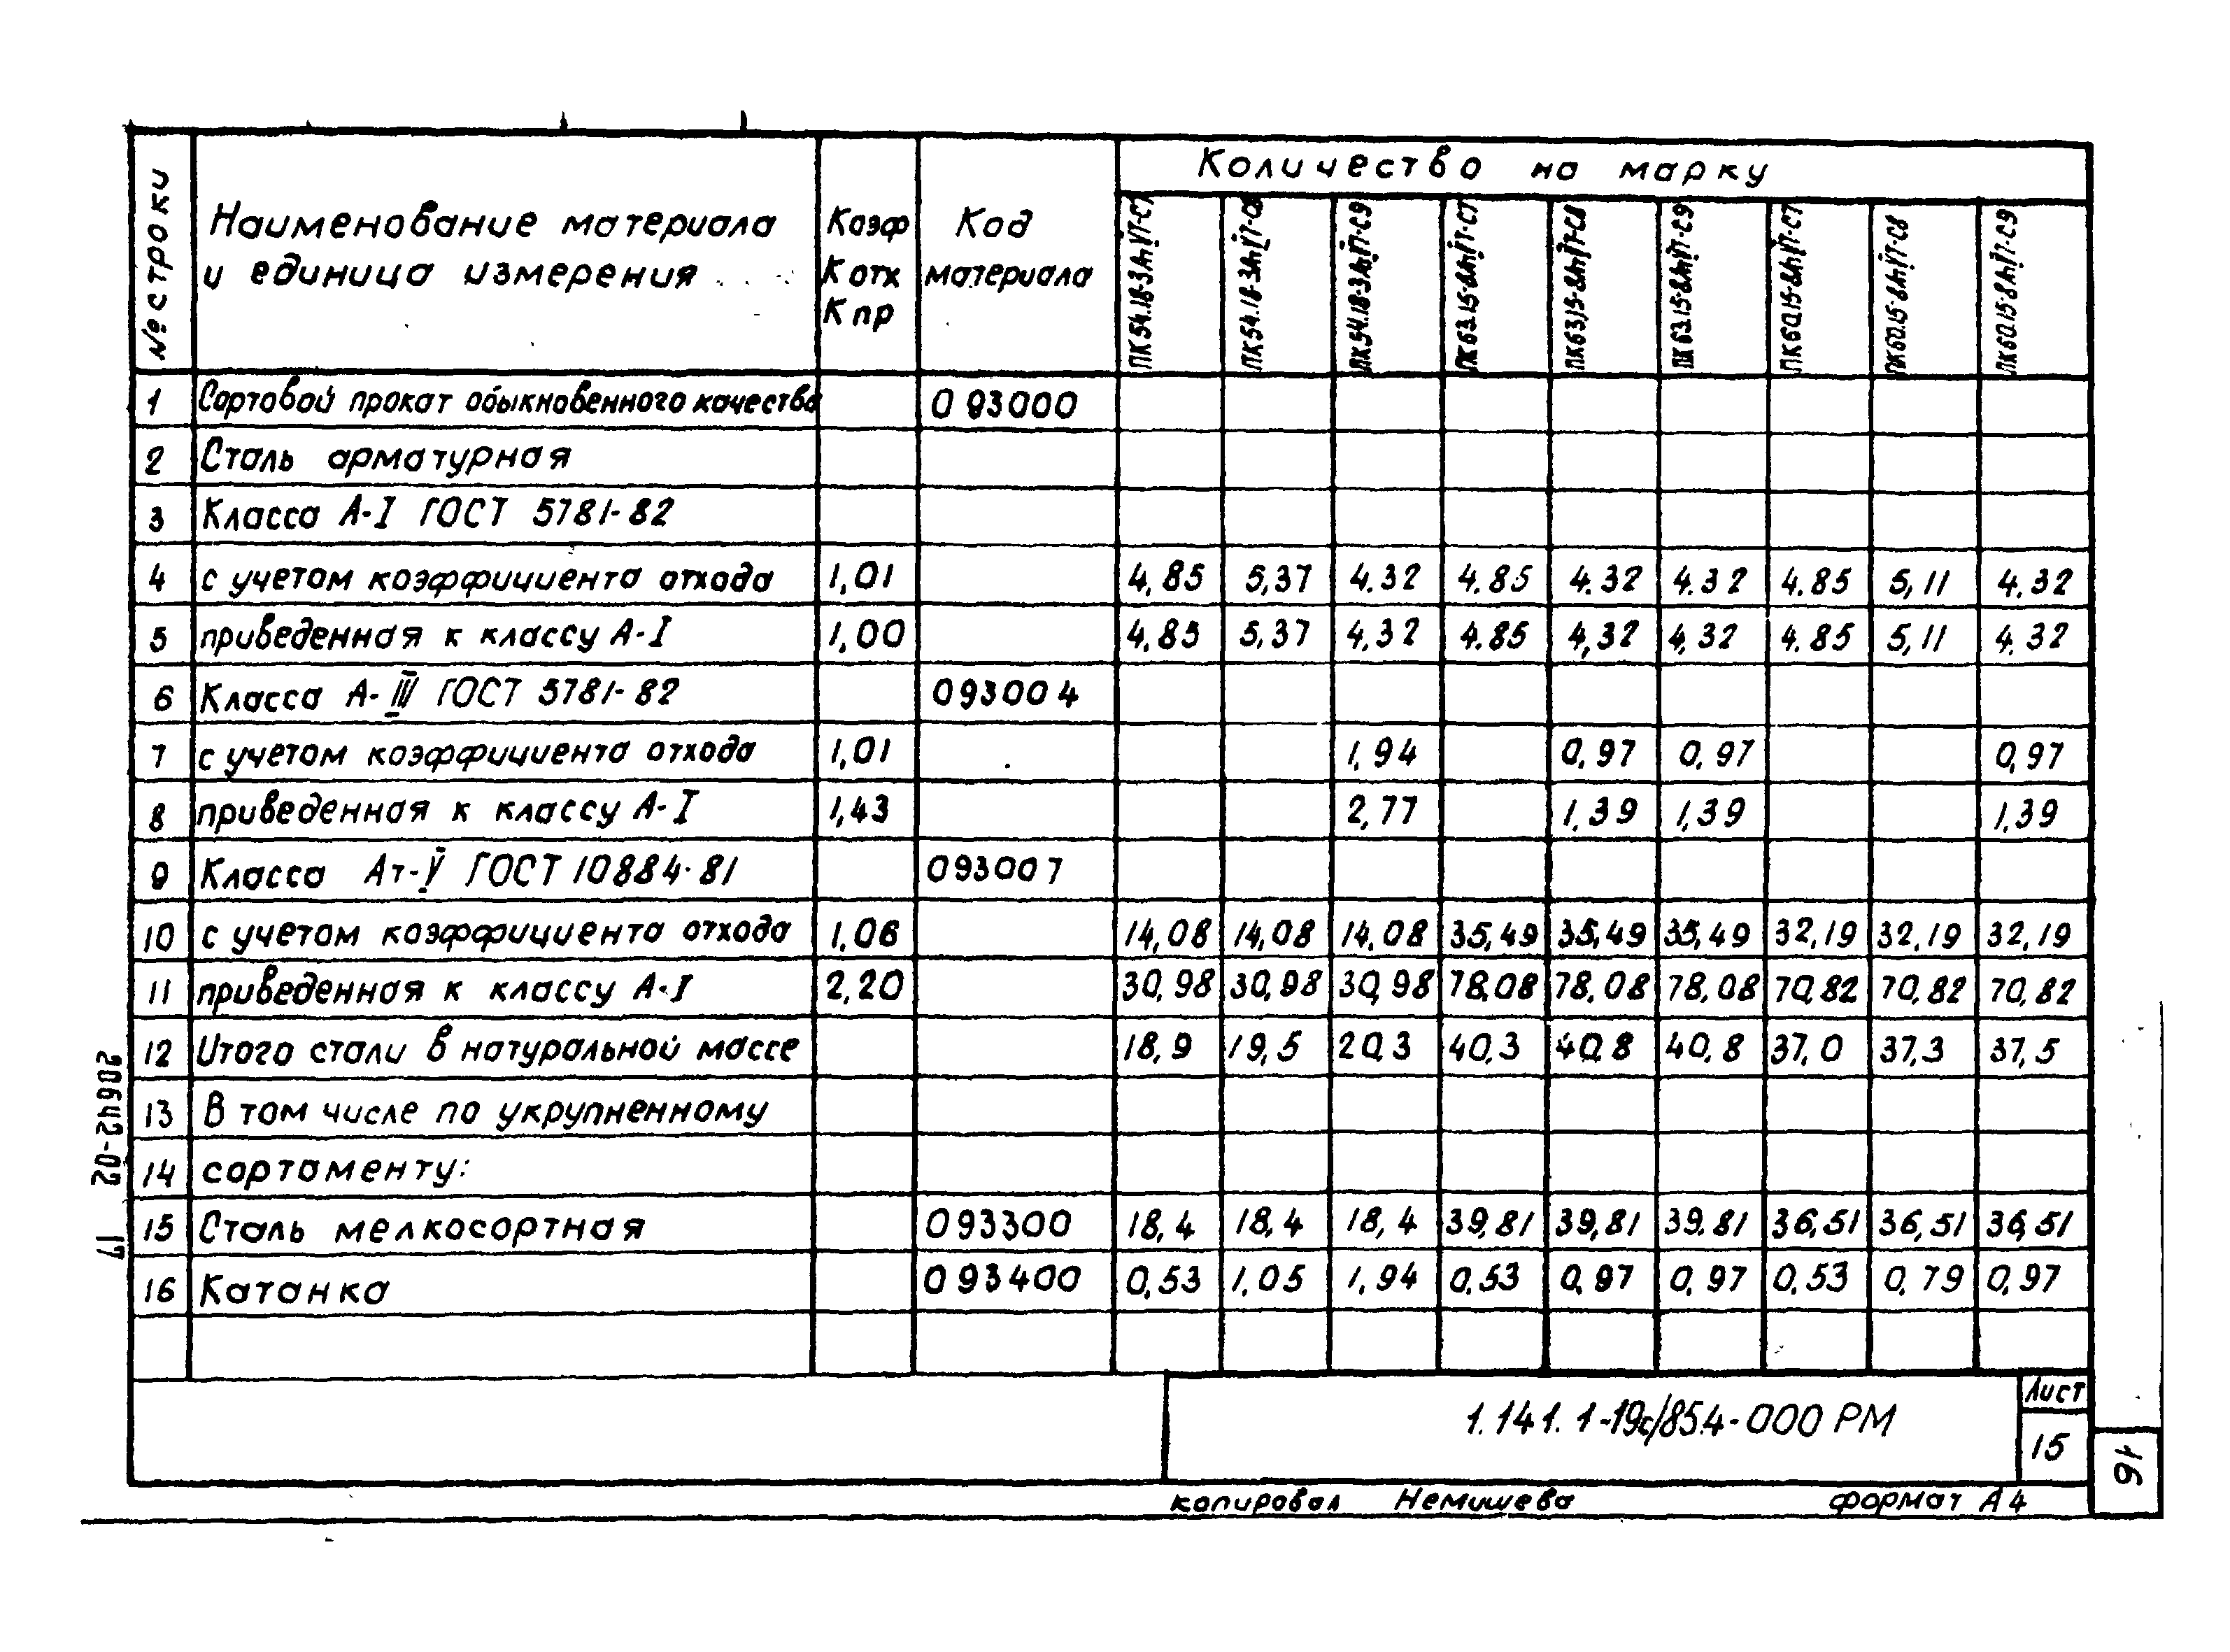 № строки
Наименование материала
и единица измерения
Коэф
К отх
К пр
Код
материала
Количество на марку
ПК54.18-3АтVТ-С7
ПК54.18-3АтVТ-С8
ПК54.18-3АтVТ-С9
ПК63.15-8АтVТ-С7
ПК63.15-8АтVТ-С8
ПК63.15-8АтVТ-С9
ПК60.15-8АтVТ-С7
ПК60.15-8АтVТ-С8
ПК60.15-8АтVТ-С9
1 Сортовой прокат обыкновенного качества 093000
2 Сталь арматурная
3 Класса А-I ГОСТ 5781-82
4 с учетом коэффициента отхода 1,01 4,85 5,37 4.32 4.85 4.32 4.32 4.85 5,11 4.32
5 приведенная к классу А-I 1,00 4.85 5,37 4,32 4.85 4,32 4,32 4.85 5,11 4.32
6 Класса А-III ГОСТ 5781-82 093004
7 с учетом коэффициента отхода 1,01 1,94 0,97 0,97 0,97
8 приведенная к классу А-I 1,43 2,77 1,39 1,39 1,39
9 Класса Ат-V ГОСТ 10884-81 093007
10 с учетом коэффициента отхода 1,06 14,08 14,08 14,08 35,49 35,49 35,49 32,19 32,19 32,19
11 приведенная к классу А-I 2,20 30,98 30,98 30,98 78,08 78,08 78,08 70,82 70,82 70,82
12 Итого стали в натуральной массе 18,9 19,5 20,3 40,3 40,8 40,8 37,0 37,3 37,5
13 В том числе по укрупненному
14 сортаменту:
15 Сталь мелкосортная 093300 18,4 18,4 18,4 39,81 39,81 39.81 36,51 36,51 36,51
16 Катанка 093400 0,53 1,05 1,94 0,53 0,97 0,97 0,53 0,79 0,97
20642-02 17
1.141.1-19с/85.4-000 РМ
Лист
15
16
копировал Немишева формат А4